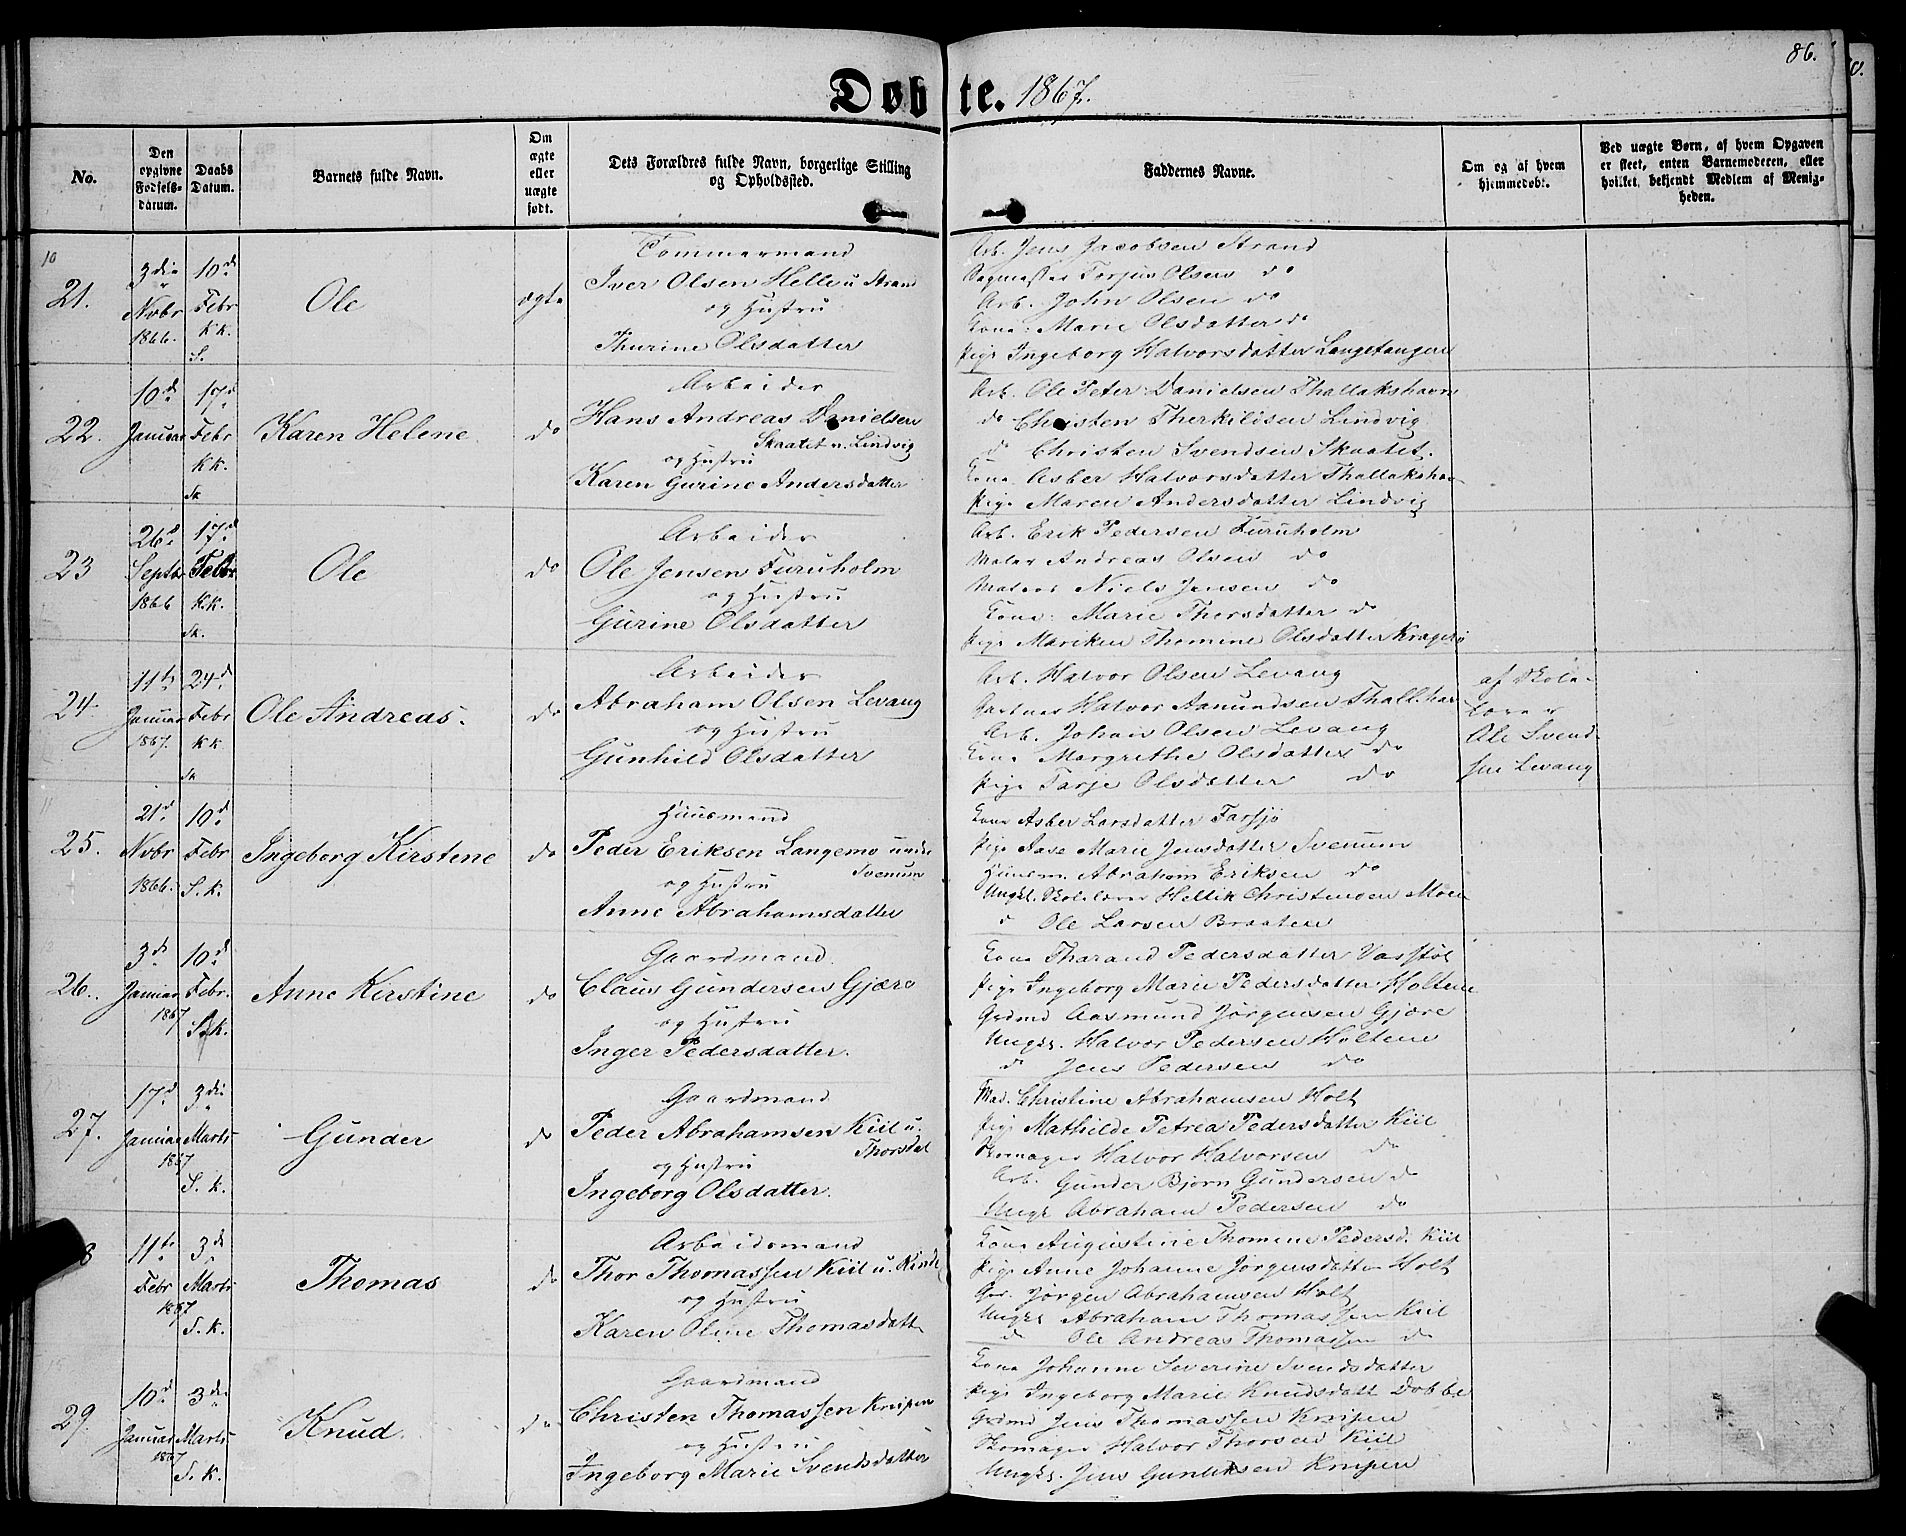 86.
Døbte. 1867.
No.
Den opgivne Fødselsdatum.
Daabs Datum.
Barnets fulde Navn.
Om ægte eller uægte født.
Dets Forældres fulde Navn, borgerlige Stilling og Opholdssted.
Faddernes Navne.
Om og af hvem hjemmedøbt.
Ved uægte Børn, af hvem Opgaven er skeet, enten Barnemoderen, eller hvilket, bekjendt Medlem af Menigheden.
10
21.
3die Novbr 1866.
10d Febr K.K. S.
Ole
ægte
Tømmermand
Iver Olsen Helle u. Strand
og Hustru
Thurine Olsdatter
Arb. Jens Jacobsen Strand
Sagmester Torjus Olsen do
Arb. John Olsen do
Kone: Marie Olsdatter do
Pige Ingeborg Halvorsdatter Langetangen
22.
10d Januar
17d Febr K.K. Sk
Karen Helene
do
Arbeider
Hans Andreas Danielsen
Skaatet u. Lindvig
og Hustru
Karen Gurine Andersdatter
Arb. Ole Peter Danielsen Thallakshavn
do Christen Therkildsen Lindvig
d Christen Svendsen Skaatet.
Kone Asber Halvorsdatter Thallakshavn
Pige Maren Andersdatter Lindvig
23
26d Septbr 1866
17d Febr K.K. Sk.
Ole
do
Arbeider
Ole Jensen Furuholm
og Hustru
Gurine Olsdatter
Arb. Erik Pedersen Furuholm
Matros Andreas Olsen do
Matros Niels Jensen do
Kone: Marie Thorsdatter do
Pige Mariken Thomine Olsdatter Kragerø
24.
11te Januar 1867.
24d Febr K.K. Sk
Ole Andreas.
do
Arbeider
Abraham Olsen Levang
og Hustru
Gunhild Olsdatter
Arb. Halvor Olsen Levang
Halvor Aamundsen Thall.hav
Arb. Johan Olsen Levang
Kone Margrethe Olsdatter do
Pige Tarje Olsdatter do
af Skole-
lærer
Ole Svend-
sen Levang
11
25.
21d Novbr 1866.
10d Febr S.K.
Ingeborg Kirstene
do
Huusmand
Peder Eriksen Langemo under
Svenum
og Hustru
Anne Abrahamsdatter
Kone Asber Larsdatter Farsjø
Pige Aase Marie Jensdatter Svenum
Huusm. Abraham Eriksen do
Ungk. Skolelærer Hellik Christensen Moen
d Ole Larsen Braaten
26.
3de Januar 1867
10d Febr. S.k.
Anne Kirstine
do
Gaardmand.
Claus Gundersen Gjære
og Hustru
Inger Pedersdatter.
Kone Tharand Pedersdatter Vasstøl
Pige Ingeborg Marie Pedersdatter Holtene
Grdmd Aasmund Jørgensen Gjære
Ungk. Halvor Pedersen Holtene
d Jens Pedersen do
27.
17d Januar 1867
3die Marts S. K.
Gunder
do
Gaardmand
Peder Abrahamsen Kiil u.
Thorsdal
og Hustru
Ingeborg Olsdatter.
Mad. Christine Abrahamsen Holt
Pige Mathilde Petrea Pedersdatter Kiil
Skomager Halvor Halvorsen do
Arb. Gunder Bjørn Gundersen do
Ungk Abraham Pedersen do
8
11te Febr 1867
3de Marts S.K.
Thomas
do
Arbeidsmand
Thor Thomassen Kiil u. Rinde
og Hustru
Karen Oline Thomasdatt
Kone Augustine Thomine Pedersd. Kiil
Pige Anne Johanne Jørgensdatter Holt
Jørgen Abrahamsen Holt
Ungk Abraham Thomassen Kiil
d Ole Andreas Thomassen do
15
29.
10d Januar 1867
3die Marts S.K.
Knud.
do
Gaardmand
Christen Thomassen Knipen
og Hustru
Ingeborg Marie Svendsdatter
Kone Johanne Severine Svendsdatter
Pige Ingeborg Marie Knudsdatt Dobbe
Grdmd Jens Thomassen Knipen
Skomager Halvor Thorsen Kiil
Ungk. Jens Gunleksen Knipen